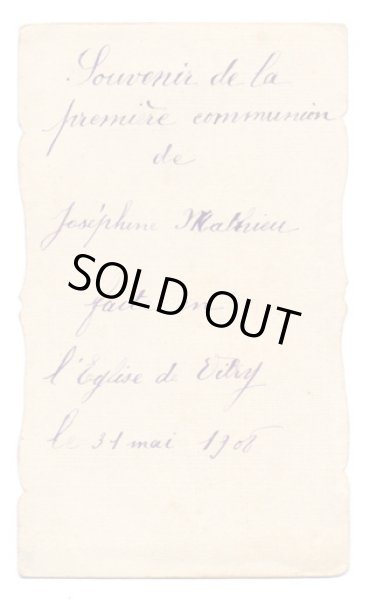 Souvenir de la
première communion
de
Joséphine Mathieu
SOLD OUT
fait en
l'Eglise de Vitry
le 31 mai 1906